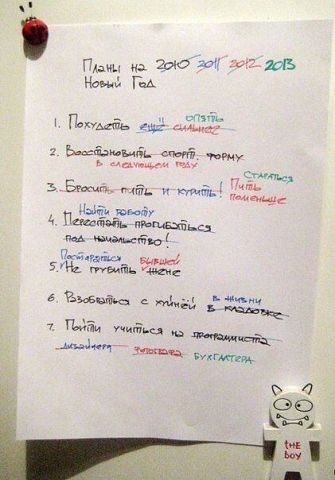 Планы на 2010 2011 2012 2013
Новый Год
опять
1. Похудеть ещё сильнее
2. Восстановить спорт. форму
в следующем году
стараться
3. Бросить пить и курить! Пить
поменьше
Найти работу
4. Перестать прогибаться
под начальство!
Постараться бывшей
5. Не грубить жене
в жизни
6. Разобраться с хуйнёй в кладовке
7. Пойти учиться на программиста
дизайнера фотографа бухгалтера
the
boy